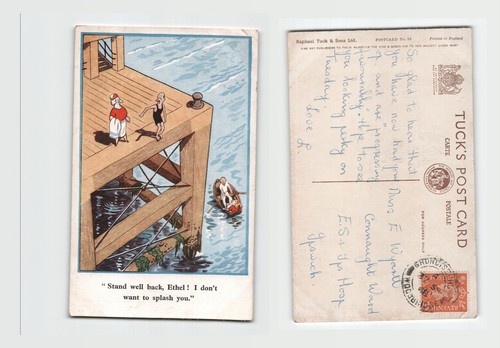 " Stand well back, Ethel! I don't
want to splash you."
Raphael Tuck & Sons Ltd.
POSTCARD No. 
Printed in England
TUCK'S POST CARD
CARTE
POSTALE
FOR ADDRESS ONLY
So glad to hear that
you have now had your
op. and are progressing
favourably. Hope to see
you looking perky on
Tuesday.
Love
Miss E Wyatt
Connaught Ward
E.S & Ips Hosp
Ipswich